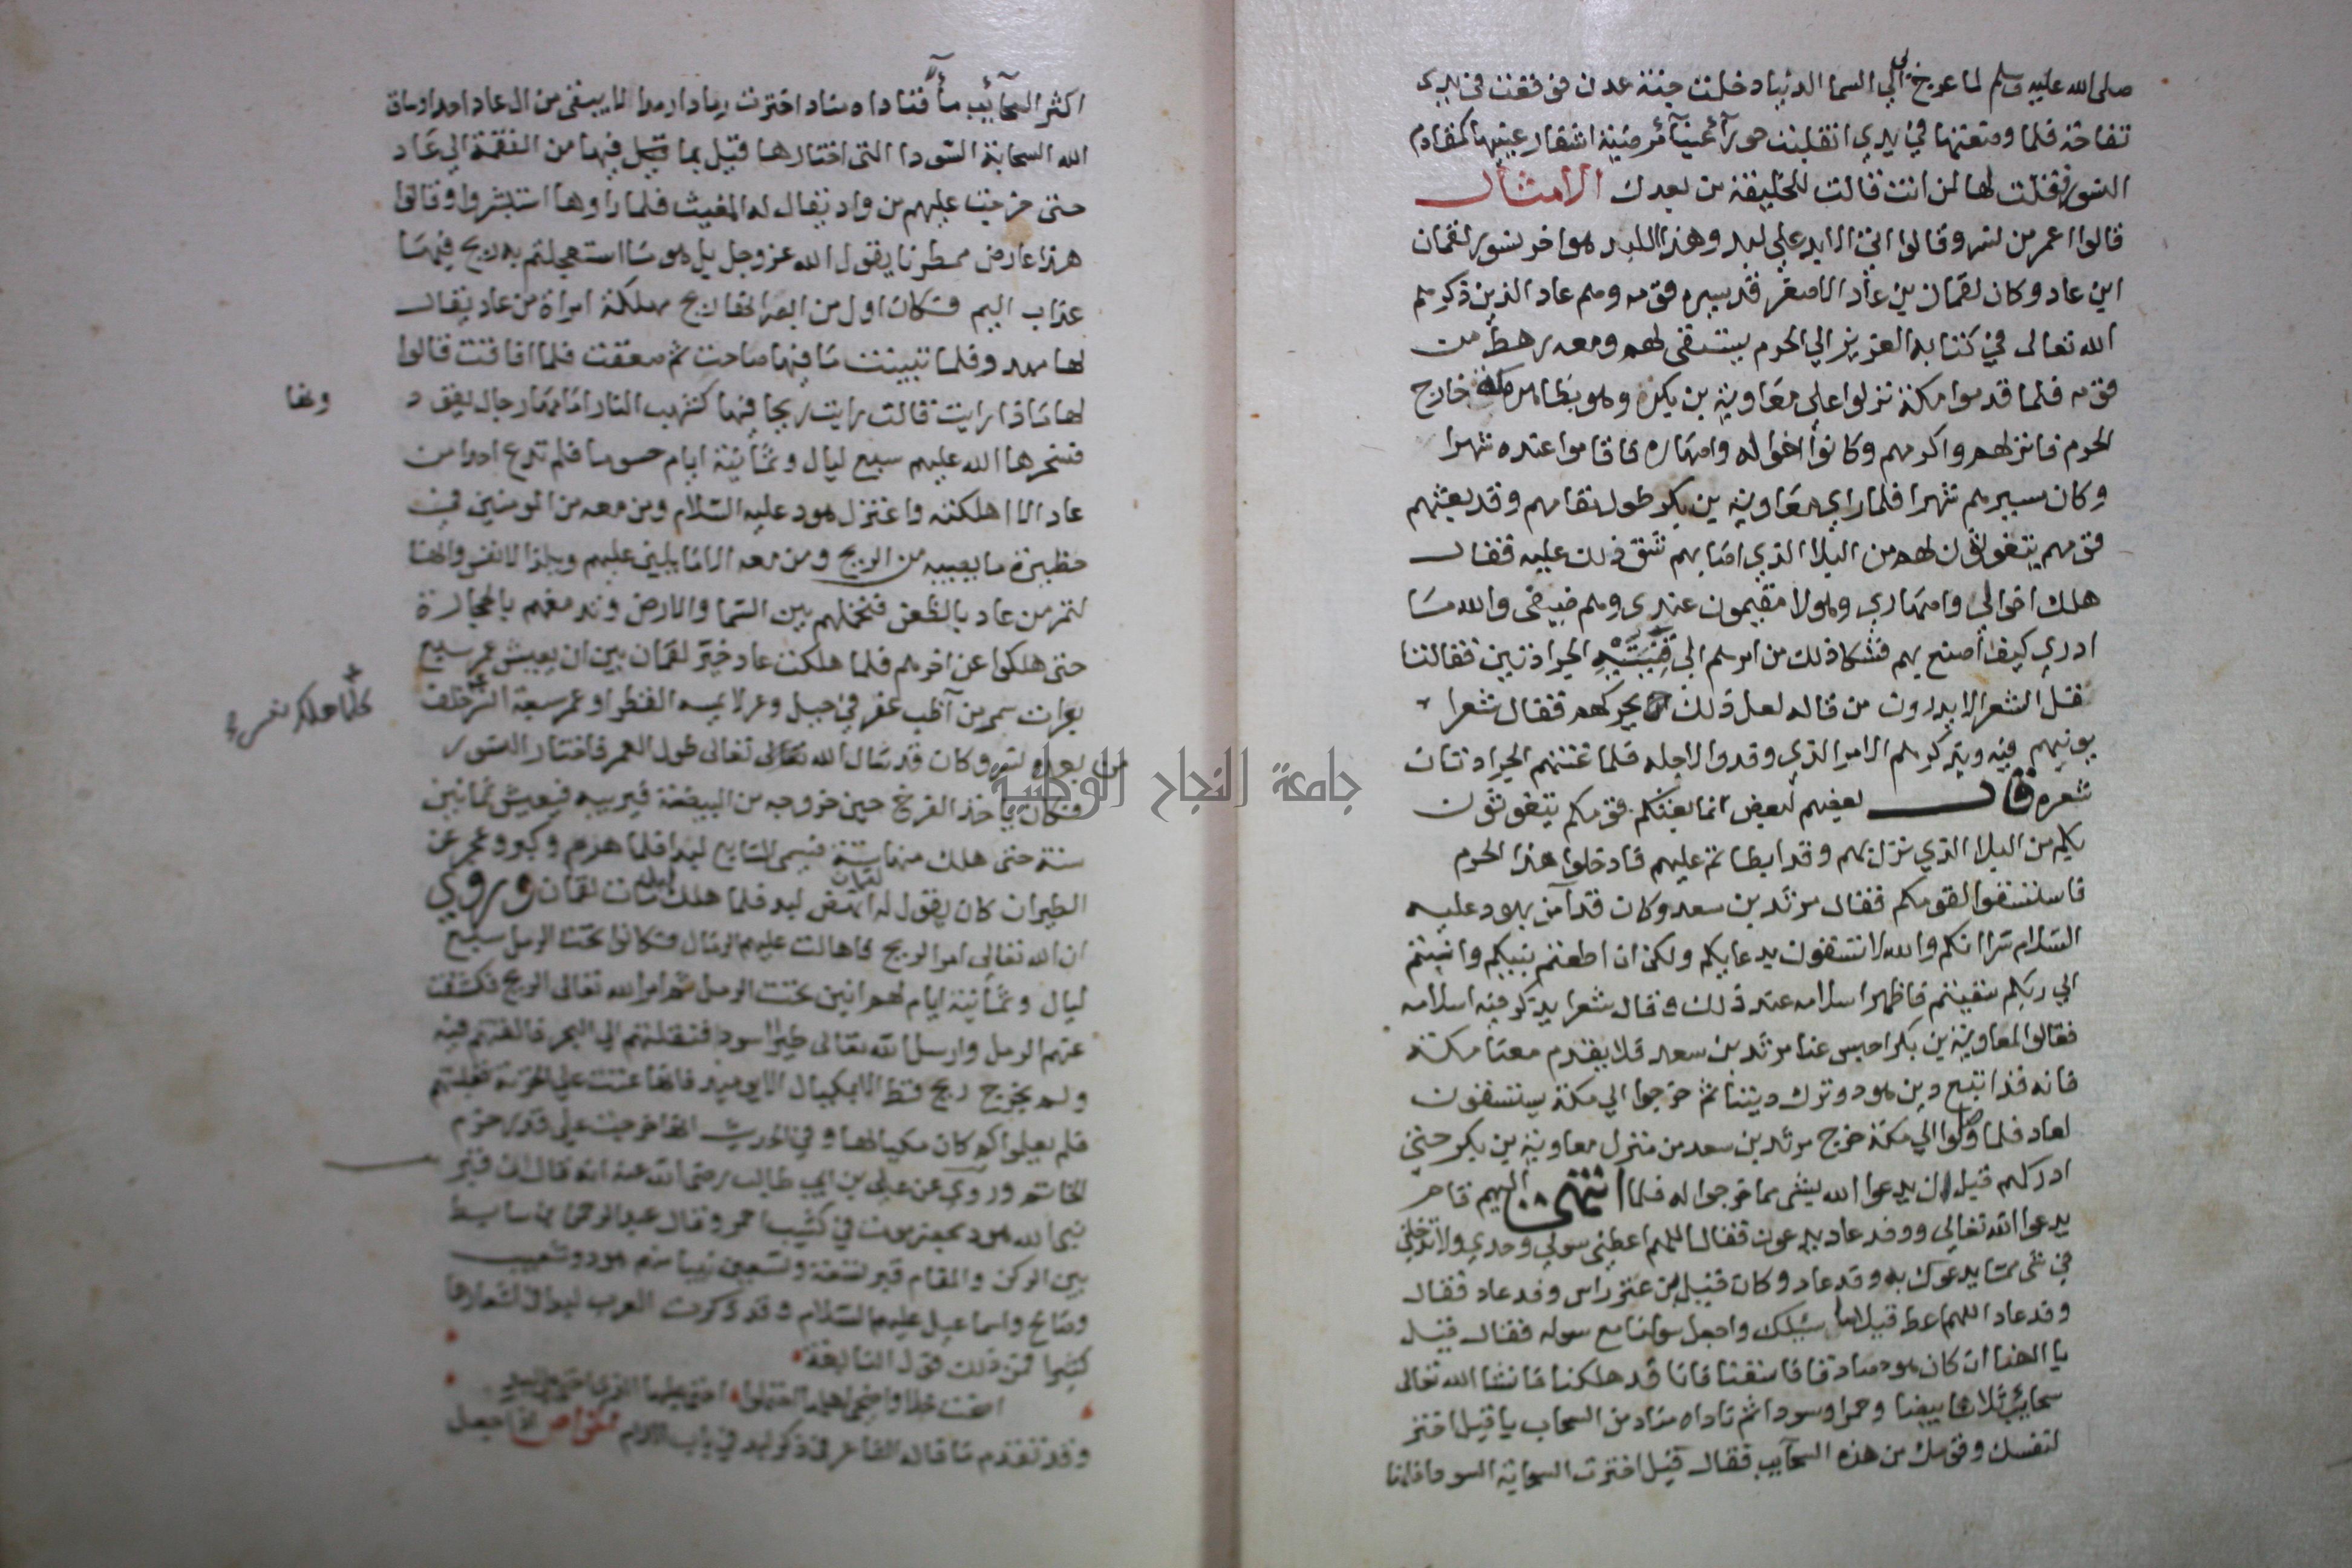 صلى الله عليه وسلم لما عرج بي الي السما الدنيا دخلت جنة عدن فوقعت في يدي
تفاحة فلما وضعتها في يدي انقلبت حورآ عينآ مرضية اشفار عينيها كمقادم
النسور فقلت لها لمن انت قالت للخليفة من بعدك الامثال
قالوا اعمر من نسر وقالوا اتي الابد علي لبد وهذا اللبد هو اخر نسور لقمان
ابن عاد وكان لقمان بن عاد الاصغر قد سيره قومه وهم عاد الذين ذكرهم
الله تعالى في كتابه العزيز الي الحرم يستسقي لهم ومعه رهط من
قومه فلما قدموا مكة نزلوا علي معاوية بن بكر وهو بظاهر مكة خارج
الحرم فانزلهم واكرمهم وكانوا اخواله واصهاره فاقاموا عنده شهرا
وكان سيرهم شهرا فلما راي معاوية بن بكر طول مقامهم وقد بعثهم
قومهم يتغوثون لهم من البلا الذي اصابهم شق ذلك عليه فقال
هلك اخوالي واصهاري وهولا مقيمون عندي وهم ضيفي والله ما
ادري كيف اصنع بهم فشكا ذلك من امرهم الي قينتيه الجرادتين فقالتا
قل الشعر لا يدرون من قاله لعل ذلك يحركهم فقال شعرا
يونبهم فيه ويذكرهم الامر الذي وفدوا لاجله فلما غنتهم الجرادتان
شعره قال بعضهم لبعض انما بعثكم قومكم يتغوثون
بكم من البلا الذي نزل بهم وقد ابطاتم عليهم فادخلوا هذا الحرم
فاستسقوا لقومكم فقال مرثد بن سعد وكان قد آمن بهود عليه
السلام سرا انكم والله لا تسقون بدعايكم ولكن ان اطعتم نبيكم وانبتم
الي ربكم سقيتم فاظهر اسلامه عند ذلك وقال شعرا يذكر فيه اسلامه
فقالوا لمعاوية بن بكر احبس عنا مرثد بن سعد فلا يقدم معنا مكة
فانه قد اتبع دين هود وترك ديننا ثم خرجوا الي مكة يستسقون
لعاد فلما وصلوا الي مكة خرج مرثد بن سعد من منزل معاوية بن بكر حتى
ادركهم قبل ان يدعوا الله بشي مما خرجوا له فلما انتهى اليهم قام
يدعوا الله تعالي ووفد عاد يدعون فقال اللهم اعطني سولي وحدي ولا تدخلني
في شي مما يدعوك به وفد عاد وكان قيل بن عنز راس وفد عاد فقال
وفد عاد اللهم اعط قيلا ما سئلك واجعل سولنا مع سوله فقال قيل
يا الهنا ان كان هود صادقا فاسقنا فانا قد هلكنا فانشا الله تعالى
سحائب ثلاثا بيضا وحمرا وسودا ثم ناداه مناد من السحاب يا قيل اختر
لنفسك وقومك من هذه السحايب فقال قيل اخترت السحابة السودا فانها
اكثر السحآئب مآ فناداه مناد اخترت رمادا رمددا لا يبقي من ال عاد احدا وساق
الله السحابة السودا التي اختارها قيل بما فيها من النقمة الي عاد
حتى خرجت عليهم من واد يقال له المغيث فلما راوها استبشروا وقالوا
هذا عارض ممطرنا يقول الله عز وجل بل هو ما استعجلتم به ريح فيها
عذاب اليم فكان اول من ابصر انها ريح مهلكة امراة من عاد يقال
لها مهدد فلما تبينت ما فيها صاحت ثم صعقت فلما افاقت قالوا
لها ماذا رايت قالت رايت ريحا فيها كشهب النار امامها رجال يقود
ونها
فسخرها الله عليهم سبع ليال وثمانية ايام حسوما فلم تدع احدا من
عاد الا اهلكته واعتزل هود عليه السلام ومن معه من المومنين في
حظيرة ما يصيبه من الريح ومن معه الا ما يلين عليهم وتلذ الانفس وانها
لتمر من عاد بالظعن فتحملهم بين السما والارض وتدمغهم بالحجارة
حتى هلكوا عن اخرهم فلما هلكت عاد خير لقمان بين ان يعيش عمر سبع
بعرات سمر من آظب عفر في جبل وعر لا يمسه القطر او عمر سبعة انسر خلف
كلما هلك نسر
من بعده نسر وكان قد سال الله تعالى طول العمر فاختار النسور
فكان ياخذ الفرخ حين خروجه من البيضة فيربيه فيعيش ثمانين
سنة حتى هلك منها ستة فسمى السابع لبدا فلما هرم وكبر وعجز عن
الطيران كان يقول له لقمان انهض لبد فلما هلك لبد مات لقمان وروي
ان الله تعالى امر الريح فاهالت عليهم الرمال فكانوا تحت الرمل سبع
ليال وثمانية ايام لهم انين تحت الرمل ثم امر الله تعالى الريح فكشفت
عنهم الرمل وارسل الله تعالى طيرا سودا فنقلتهم الي البحر فالقتهم فيه
ولم يخرج ريح قط الا بمكيال الا يوميذ فانها عتت علي الخزنة فغلبتهم
فلم يعلموا كم كان مكيالها وفي الحديث انها خرجت علي قدر خرم
الخاتم وروي عن علي بن ابي طالب رضى الله عنه انه قال ان قبر
نبي الله هود بحضرموت في كثيب احمر وقال عبد الرحمن بن سابط
بين الركن والمقام قبر تسعة وتسعين نبيا منهم هود وشعيب
وصالح واسماعيل عليهم السلام وقد ذكرت العرب لبدا في اشعارها
كثيرا فمن ذلك قول النابغة
اضحت خلا واضحى اهلها احتملوا اخنى عليها الذي اخنى على لبد
وقد تقدم ما قاله الشاعر في ذكر لبد في باب الالف الخواص اذا جعل
جامعة النجاح الوطنية